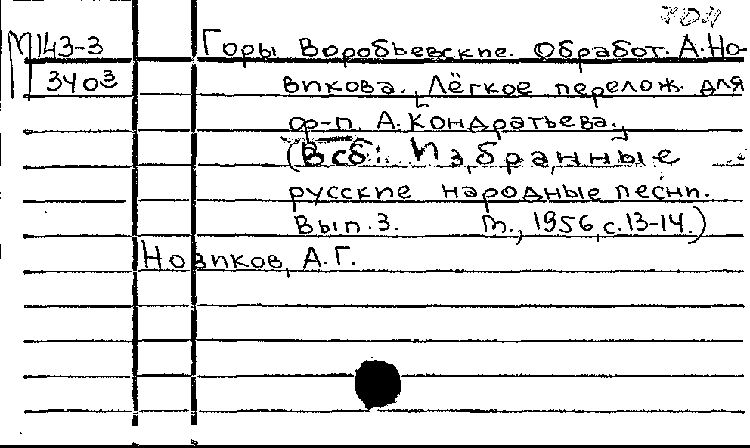 М143-3 Горы Воробьевские. Обработ. А. Но-
3403 викова. [Лёгкое перелож. для
ф-п. А. Кондратьева.]
(В сб.: Избранные
русские народные песни.
Вып. 3. М., 1956, с. 13-14.)
Новиков, А. Г.